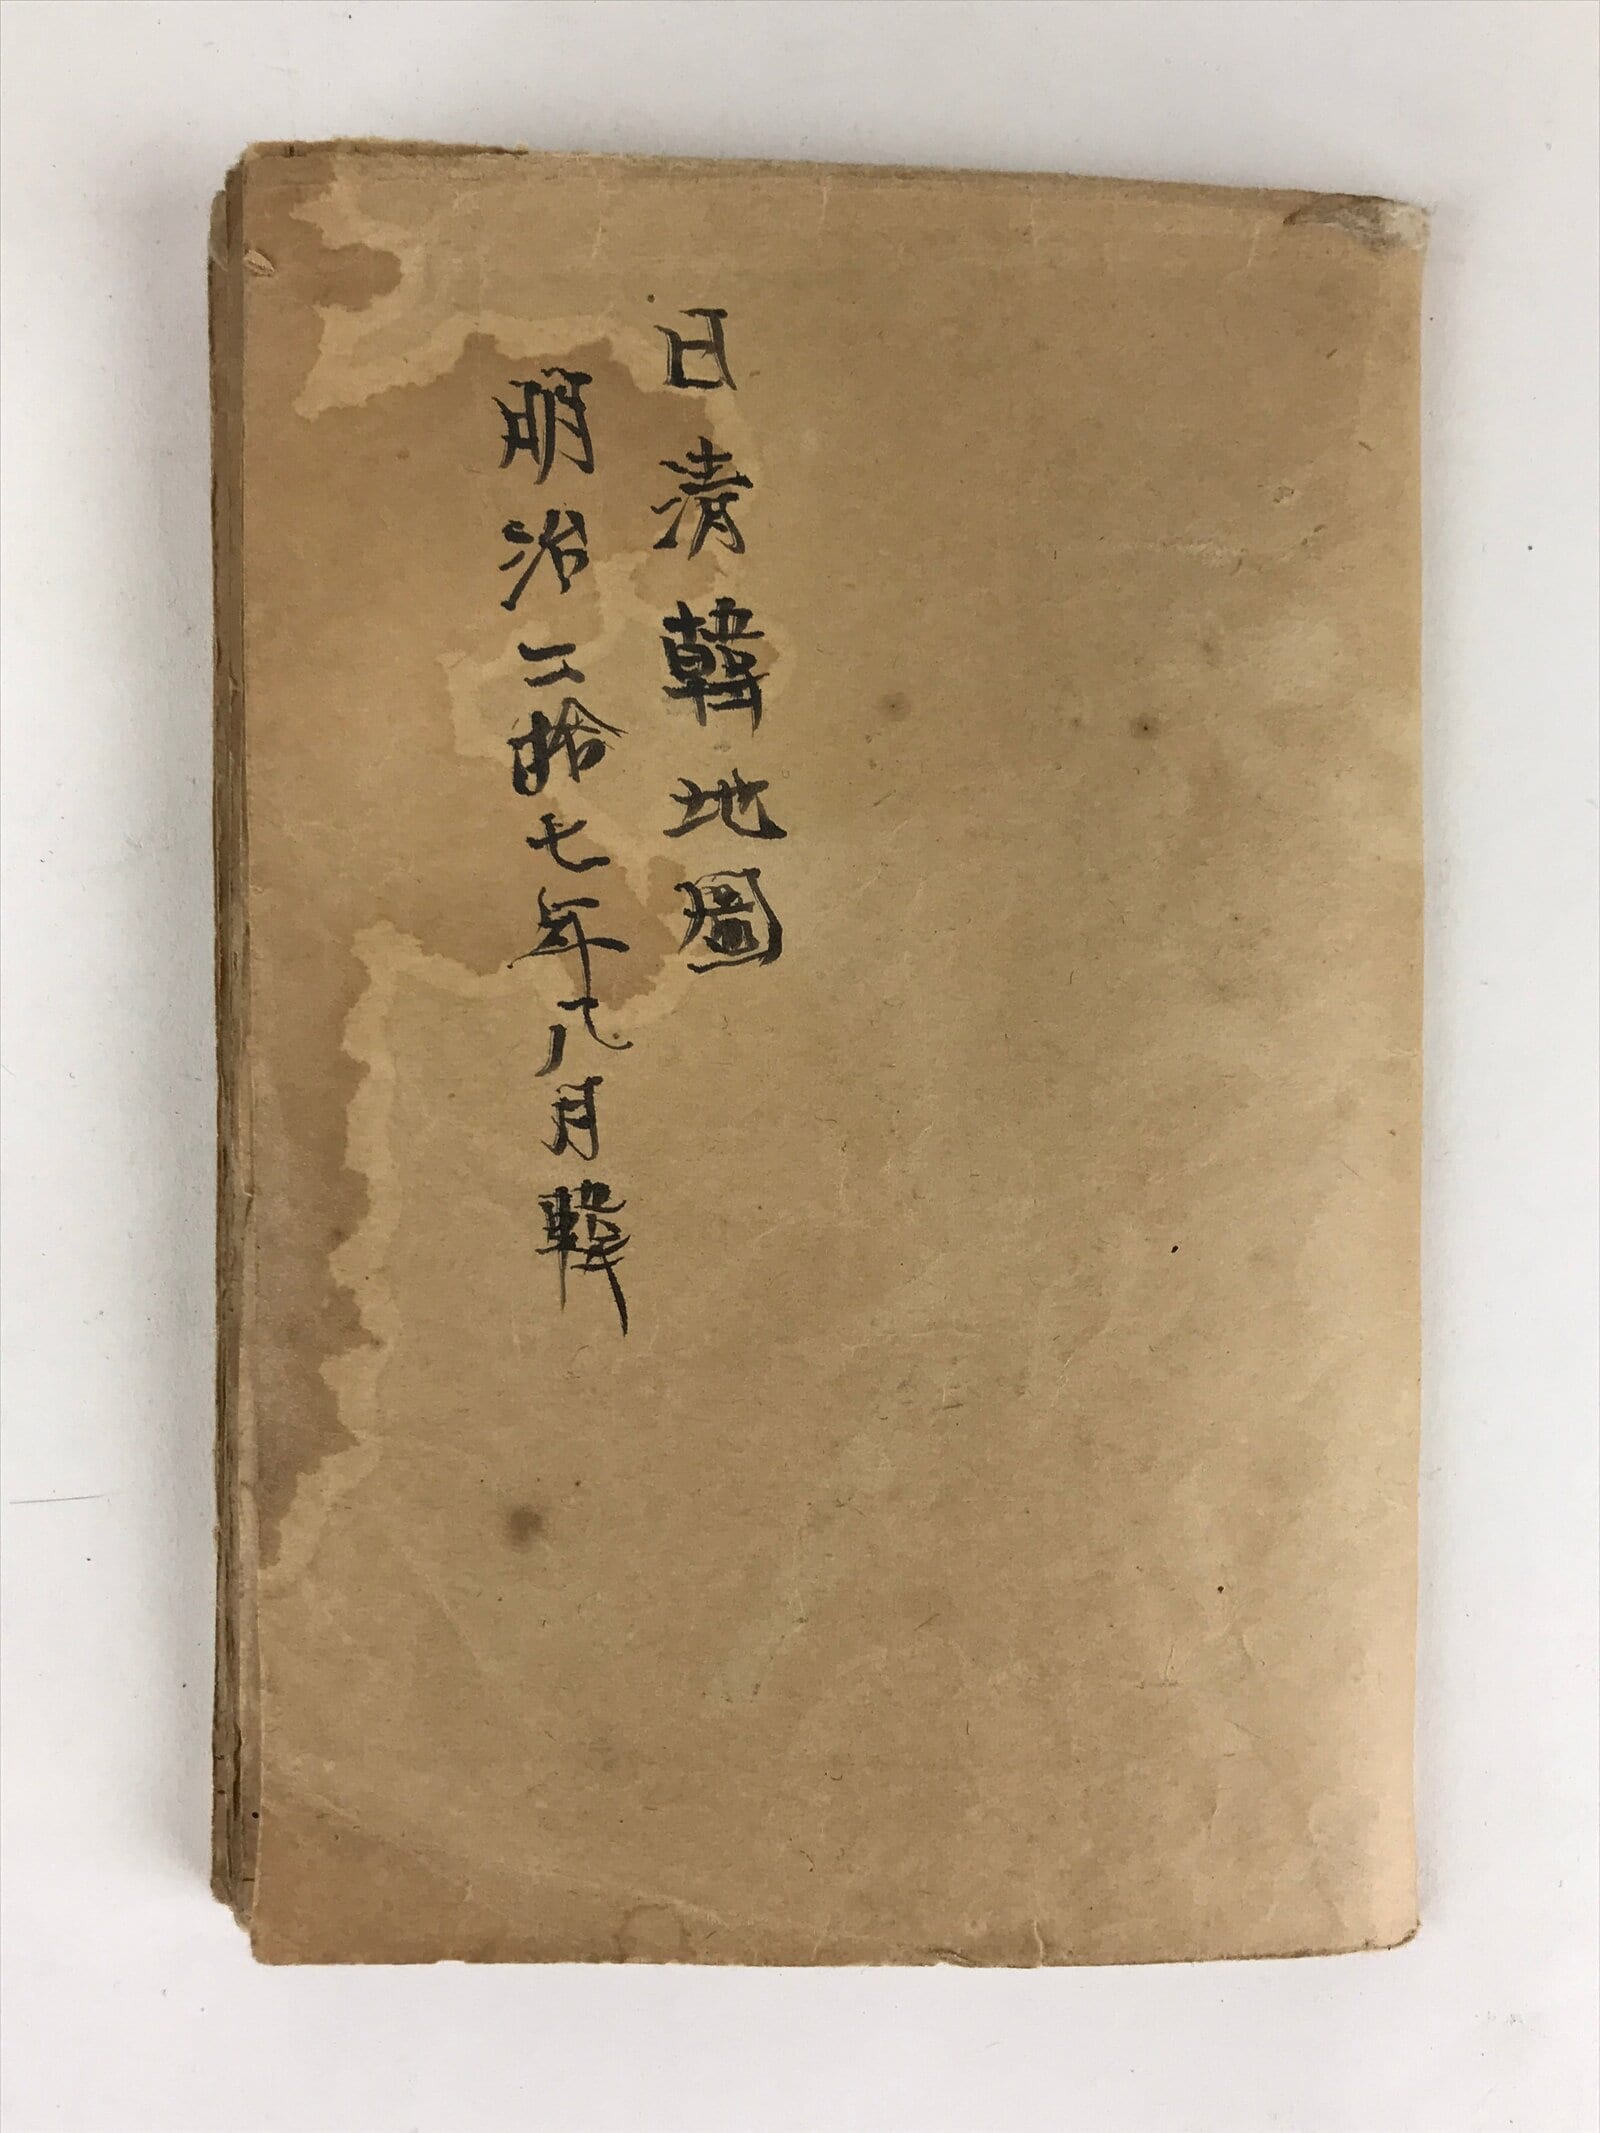 日清韓地圖
明治二拾七年八月